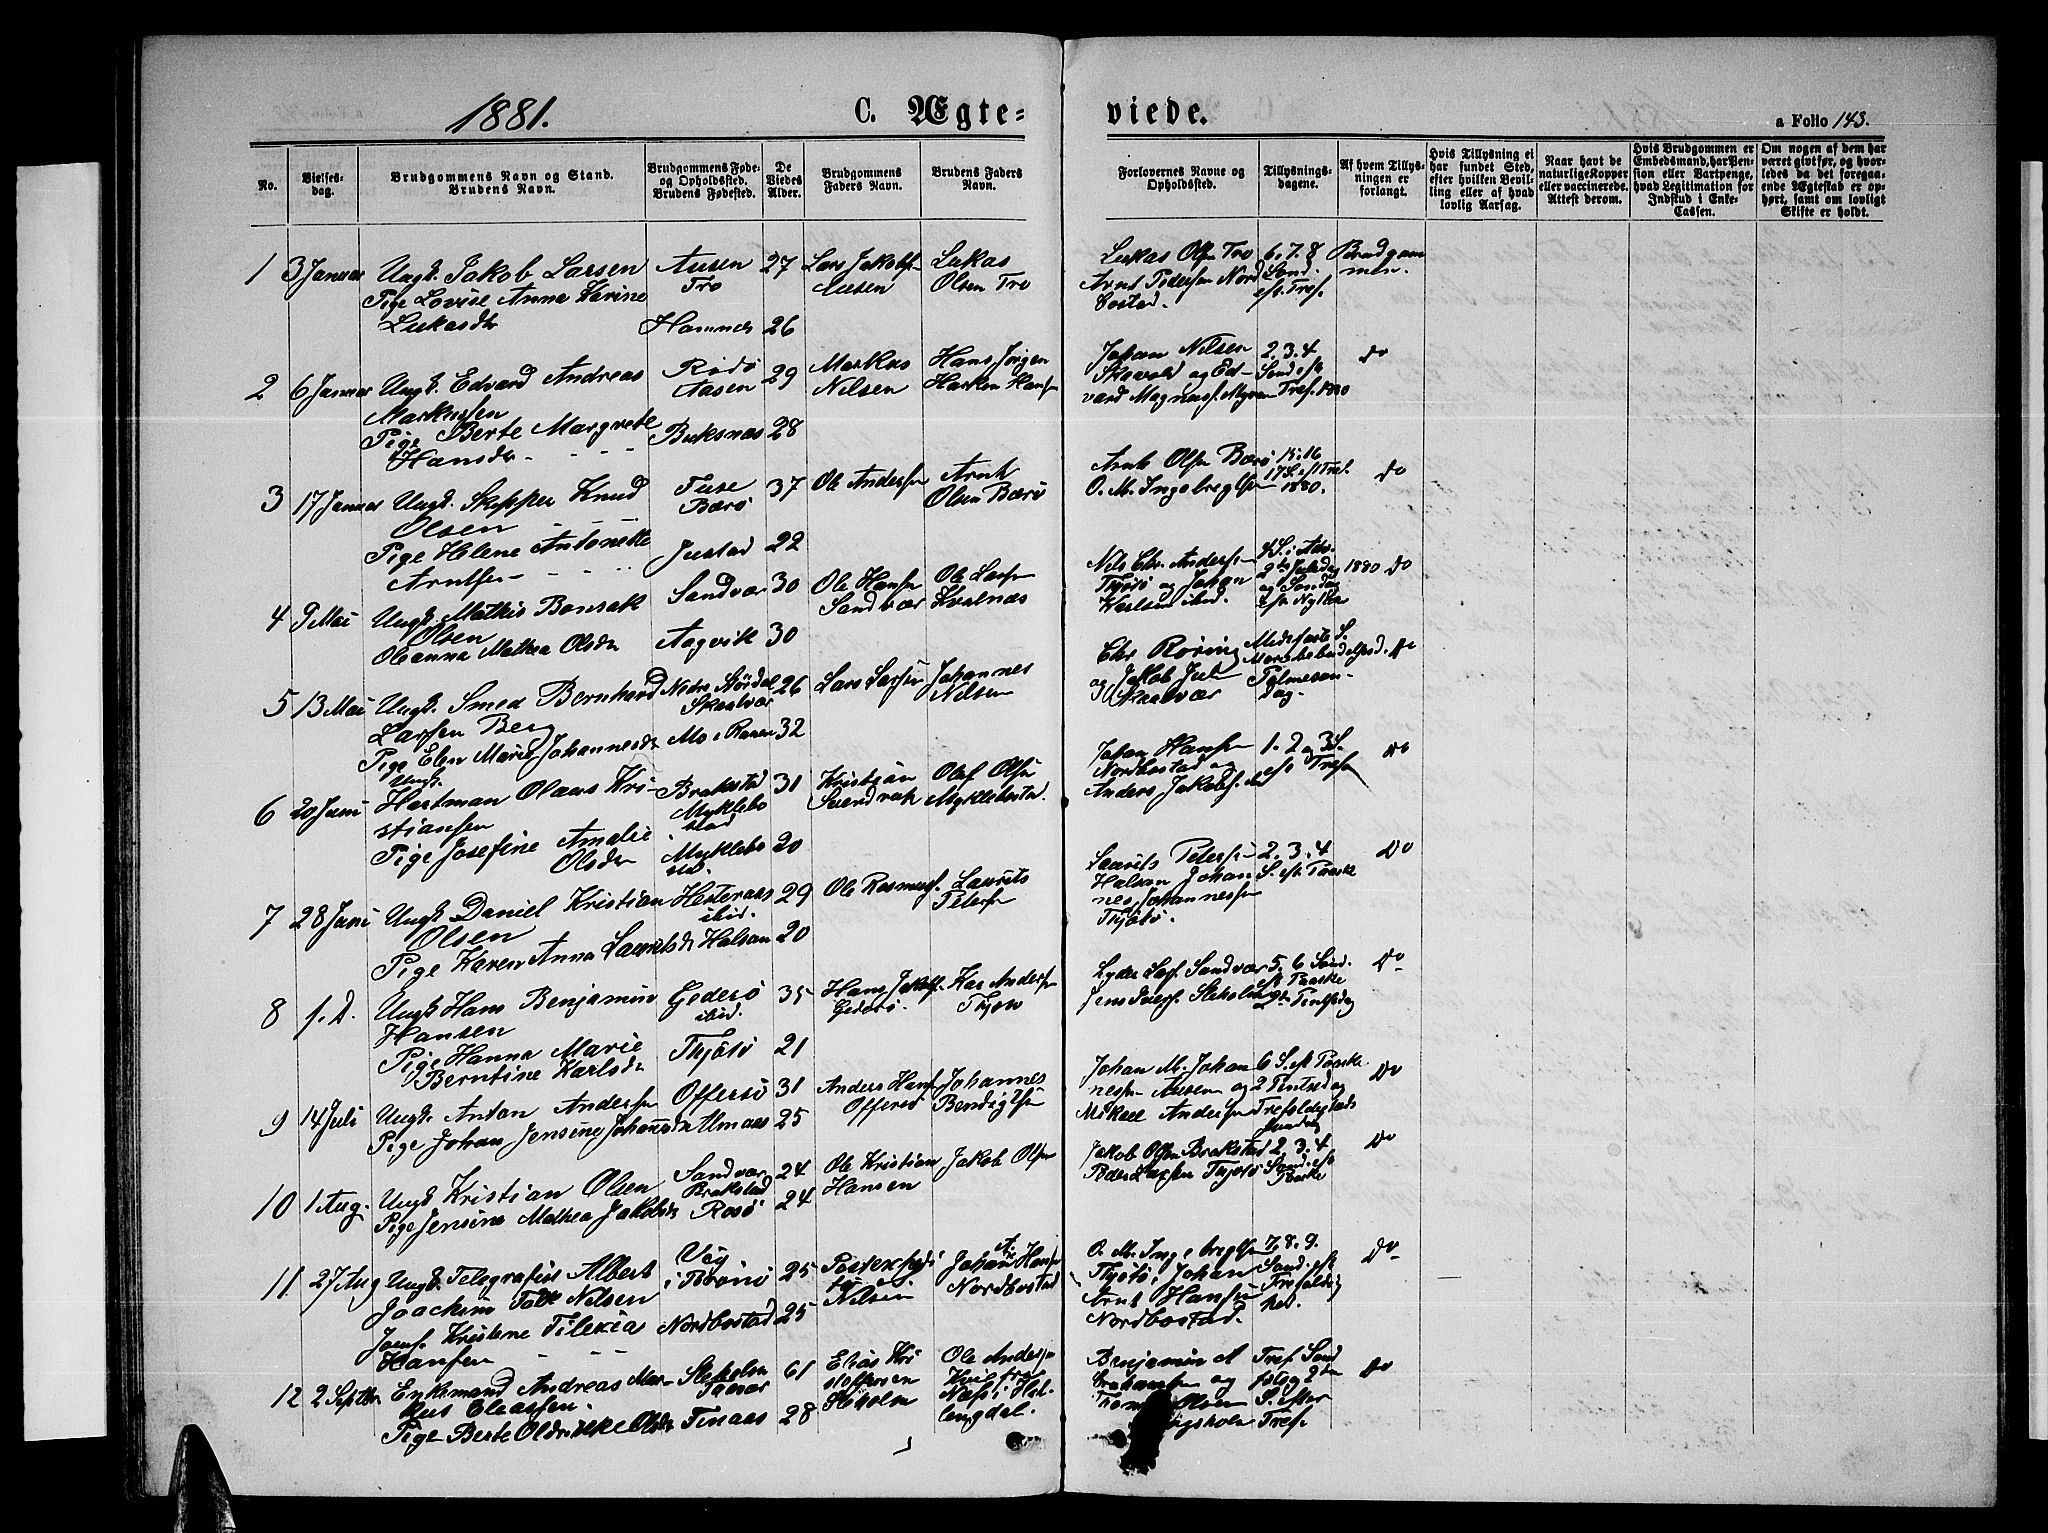 1881.
C. Ægte-
viede.
a Folio 143.
No.
Vielses-
dag.
Brudgommens Navn og Stand.
Brudens Navn.
Brudgommens Føde-
og Opholdssted.
Brudens Fødested.
De
Viedes
Alder.
Brudgommens
Faders Navn.
Brudens Faders
Navn.
Forlovernes Navne og
Opholdssted.
Tillysnings-
dagene.
Af hvem Tillys-
ningen er
forlangt.
Hvis Tillysning ei
har fundet Sted,
efter hvilken Bevil-
ling eller af hvad
lovlig Aarsag.
Naar havt de
naturlige Kopper
eller vaccinerede.
Attest derom.
Hvis Brudgommen er
Embedsmand, har Pen-
sion eller Vartpenge,
hvad Legitimation for
Indskud i Enke-
Cassen.
Om nogen af dem har
været givt før, og hvor-
ledes da det foregaa-
ende Ægteskab er op-
hørt, samt om lovligt
Skifte er holdt.
1 3 Januar Ungk. Jakob Larsen
Pige Lovise Anna Karine
Lukasdtr
Ausen
Tro
Hamnes
27
26
Lars Jakobs
Ausen
Lukas
Olsen Tro
Lukas Olsen Tro
Arnt Pedersen Nord
bostad.
6. 7. 8
Sond.
eft. Tref.
Brudgom
men.
2 6 Januar Ungk. Edvard Andreas
Markussen
Pige Berte Margrete
Hansdtr
Rødø
Aasen
Buksnæs
29
28
Markus
Nilsen
Hans Jørgen
Hansen
Johan Nilsen
Skavold og Ed-
vard Magnus.
2. 3. 4
Sond. eft
Tref. 1880
Do
3 17 Januar Ungk. Skipper Knud
Olsen
Pige Helene Antonette
Arntsen
Bærø
Justad
37
22
Ole Andersen
Arnt
Olsen Bærø
Arnt Olsen Bærø
O. M. Ingebregtsen
15. 16
17 S. eft Tref.
1880.
Do
4 9 Mai Ungk. Mathis Bonsak
Olsen
Oleanna Mathea Olsdr
Sandvær
Aagvik
30
30
Ole Hansen
Sandvær
Ole Larsen
Kvalnæs
Nils Chr. Andersen
Thjøtø og Johan
Karlsen ibid.
4 S. i Adv.
2den Juledag 1880
og Søndag
eft Nytaar
Do
5 13 Mai Ungk. Smed Bernhard
Larsen Berg
Pige Elen Marie Johannesdr
Nedre Størdal
Skaalvær
Mo i Ranen
26
32
Lars Larsen
Johannes
Nilsen
Chr Røring
og Jakob Juel
Skaalvær
Midfaste S.
Mariæ bebudelsesd.
Palmesøn-
dag.
Do
6 20 Juni Ungk.
Hartman Olaus Kri-
stiansen
Pige Josefine Amalie
Olsdr
Brakstad
Myklebo
stad
Myklebo
stad.
31
20
Kristian
Olaf Olsen
Myklebostad.
Johan Hansen
Nordbostad og
Anders Jakobs. ibid
1. 2 og 3 S.
eft Tref
Do
7 28 Juni Ungk Daniel Kristian
Olsen
Pige Karen Anna Lauritsdr
Hestenæs
ibid.
Halsan
29
20
Ole Rasmuss.
Laurits
Petersen
Laurits Petersen
Halsan Johan
nes Johannessen
Thjøtø.
2. 3. 4
S. eft. Paaske
Do
8 s. D. Ungk Hans Benjamin
Hansen
Pige Hanna Marie
Berntine Karlsdr
Gederø
ibid.
Thjøtø
35
21
Hans Jakobs.
Gederø.
Kar. Andersen
Lyder Las. Sandvær
5. 6 Sond.
eft Paaske
2den Pintsedag
Do
9 14 Juli Ungk. Anton Andersen
Pige Johan Jensine Johannsdr
Offersø
Almaas
31
25
Anders Hans
Offersø
Johannes
Bendigtsen
Johan M. Johan
nessen Ausen og
Mikael Andersen
6 S. eft Paaske
2 Pintsedag
Trefoldigheds
Sondag
Do
10 1 Aug. Ungk Kristian Olsen
Pige Jensine Mathea Jakobsdr
Sandvær
Brakstad
Rosø
24
24
Ole Kristian
Hansen
Jakob Olsen
Jakob Olsen Brakstad
Peder Larsen Thjøtø
2. 3. 4
Sond. eft
Paaske
Do
11 27 Aug Ungk. Telegrafist Albert
Joachim Falk Nilsen
Jomf. Kristine Tilexia
Hansen
Vig
i Brønø
Nordbostad
25
25
Postexpedi
tør
Nilsen
Johan A. Hansen
Nordbostad
O. M. Ingebregtsen
Thjøtø, Johan
Arnt Hansen
Nordbostad.
7. 8. 9.
Sond. eft
Trefoldig
hed.
Do
12 2 Septbr Enkemand Andreas Mar-
kus Eleassen.
Pige Berte Oldrikke Olsdr
Stokholm
Finaas
61
28
Elias Kri
stoffersen
Stokholm
Ole Andersen
Næs i Hat
lengdal.
Benjamin A
brahamsen og
Thom Olsen
Tref. Sond
2den
S. efter
Tref.
Do